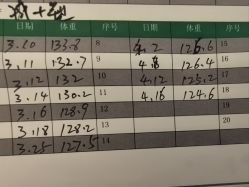 日期 体重 序号 日期 体重 序号
3.10 133.8 8 4.2 126.6 15
3.11 132.7 9 4.8 126.4 16
3.12 132 10 4.12 125.2 17
3.14 130.2 11 4.16 124.6 18
3.16 128.9 12 19
3.18 128.2 13 20
3.25 127.5 14